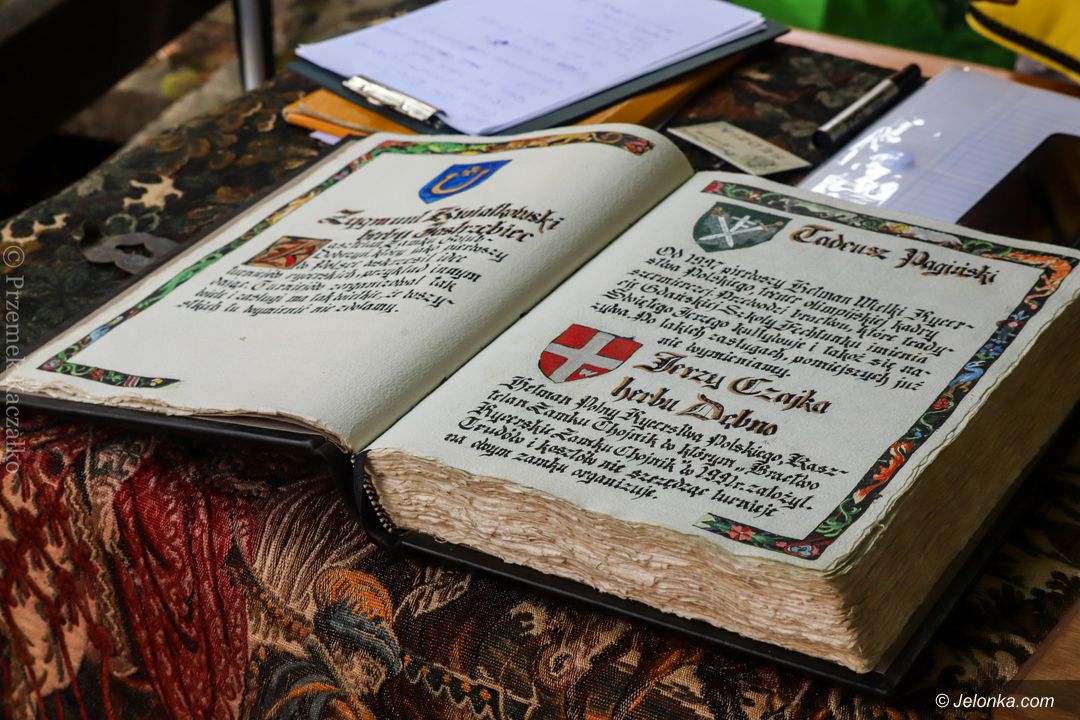 Zygmunt Kwiatkowski
herbu Jastrzębiec
Kasztelan Zamku Gniew
który pierwszy
wskrzesił ideę
Turniejów Rycerskich przykład innym
dając. Turniejów zorganizował tak
wiele i zasługi ma tak wielkie, że wszy-
stkich tu wymienić nie zdołamy.
Tadeusz Pagiński
Od 1997 pierwszy Hetman Wielki Rycer-
stwa Polskiego, Trener olimpijskiej kadry
szermierzy. Przewodzi bractwu, które trady-
cji Gdańskiej Szkoły Fechtunku imienia
Świętego Jerzego kultywuje i takoż się na-
zywa. Po takich zasługach, pomniejszych już
nie wymieniamy.
Jerzy Czajka
herbu Dębno
Hetman Polny Rycerstwa Polskiego, Kasz-
telan Zamku Chojnik na którym „Bractwo
Rycerskie Zamku Chojnik" w 1991r założył.
Trudów i kosztów nie szczędząc turnieje
na owym zamku organizuje.
© Przemek Kaczałko
© Jelonka.com